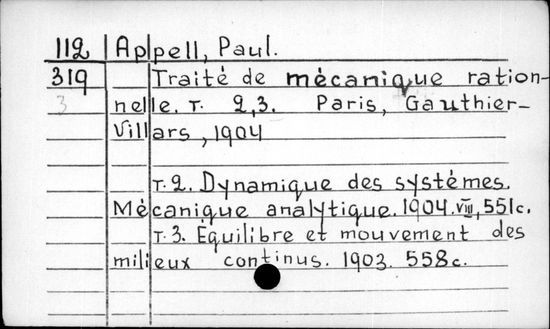 112 Appell, Paul.
319 Traité de mécanique ration-
3 nelle. т. 2,3. Paris, Gauthier-
Villars, 1904
т. 2. Dynamique des systémes.
Mécanique analytique. 1904. VIII, 551c.
т. 3. Équilibre et mouvement des
milieux continus. 1903. 558c.